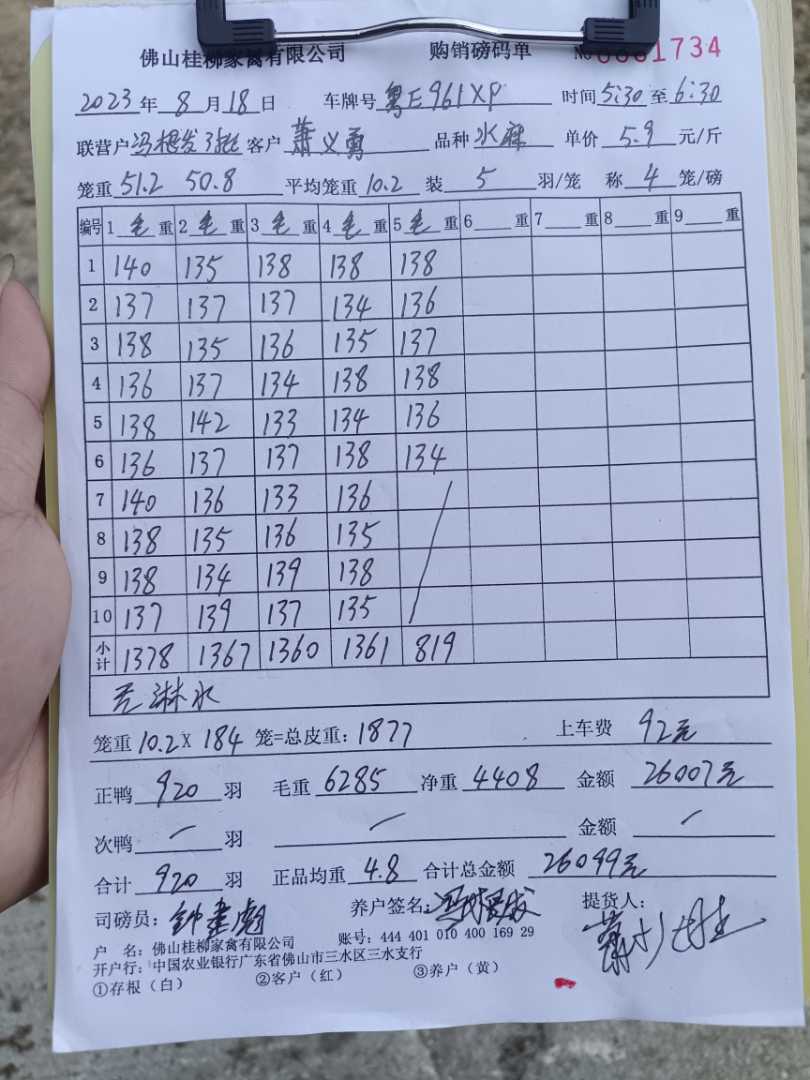 佛山桂柳家禽有限公司 购销磅码单 No 0001734
2023年8月18日 车牌号 粤E961XP 时间5:30至6:30
联营户 冯根发 客户 萧义勇 品种 水麻 单价 5.9 元/斤
笼重 51.2 50.8 平均笼重 10.2 装 5 羽/笼 称 4 笼/磅
编号 1 毛 重 2 毛 重 3 毛 重 4 毛 重 5 毛 重 6 重 7 重 8 重 9 重
1 140 135 138 138 138
2 137 137 137 134 136
3 138 135 136 135 137
4 136 137 134 138 138
5 138 142 133 134 136
6 136 137 137 138 134
7 140 136 133 136
8 138 135 136 135
9 138 134 139 138
10 137 139 137 135
小计 1378 1367 1360 1361 819
无淋水
笼重 10.2 X 184 笼=总皮重: 1877 上车费 92元
正鸭 920 羽 毛重 6285 净重 4408 金额 26007元
次鸭 — 羽 — 金额 —
合计 920 羽 正品均重 4.8 合计总金额 26099元
司磅员: 钟建彪 养户签名: 冯根发 提货人:
户 名: 佛山桂柳家禽有限公司 账号: 444 401 010 400 169 29
开户行: 中国农业银行广东省佛山市三水区三水支行
①存根(白) ②客户(红) ③养户(黄)